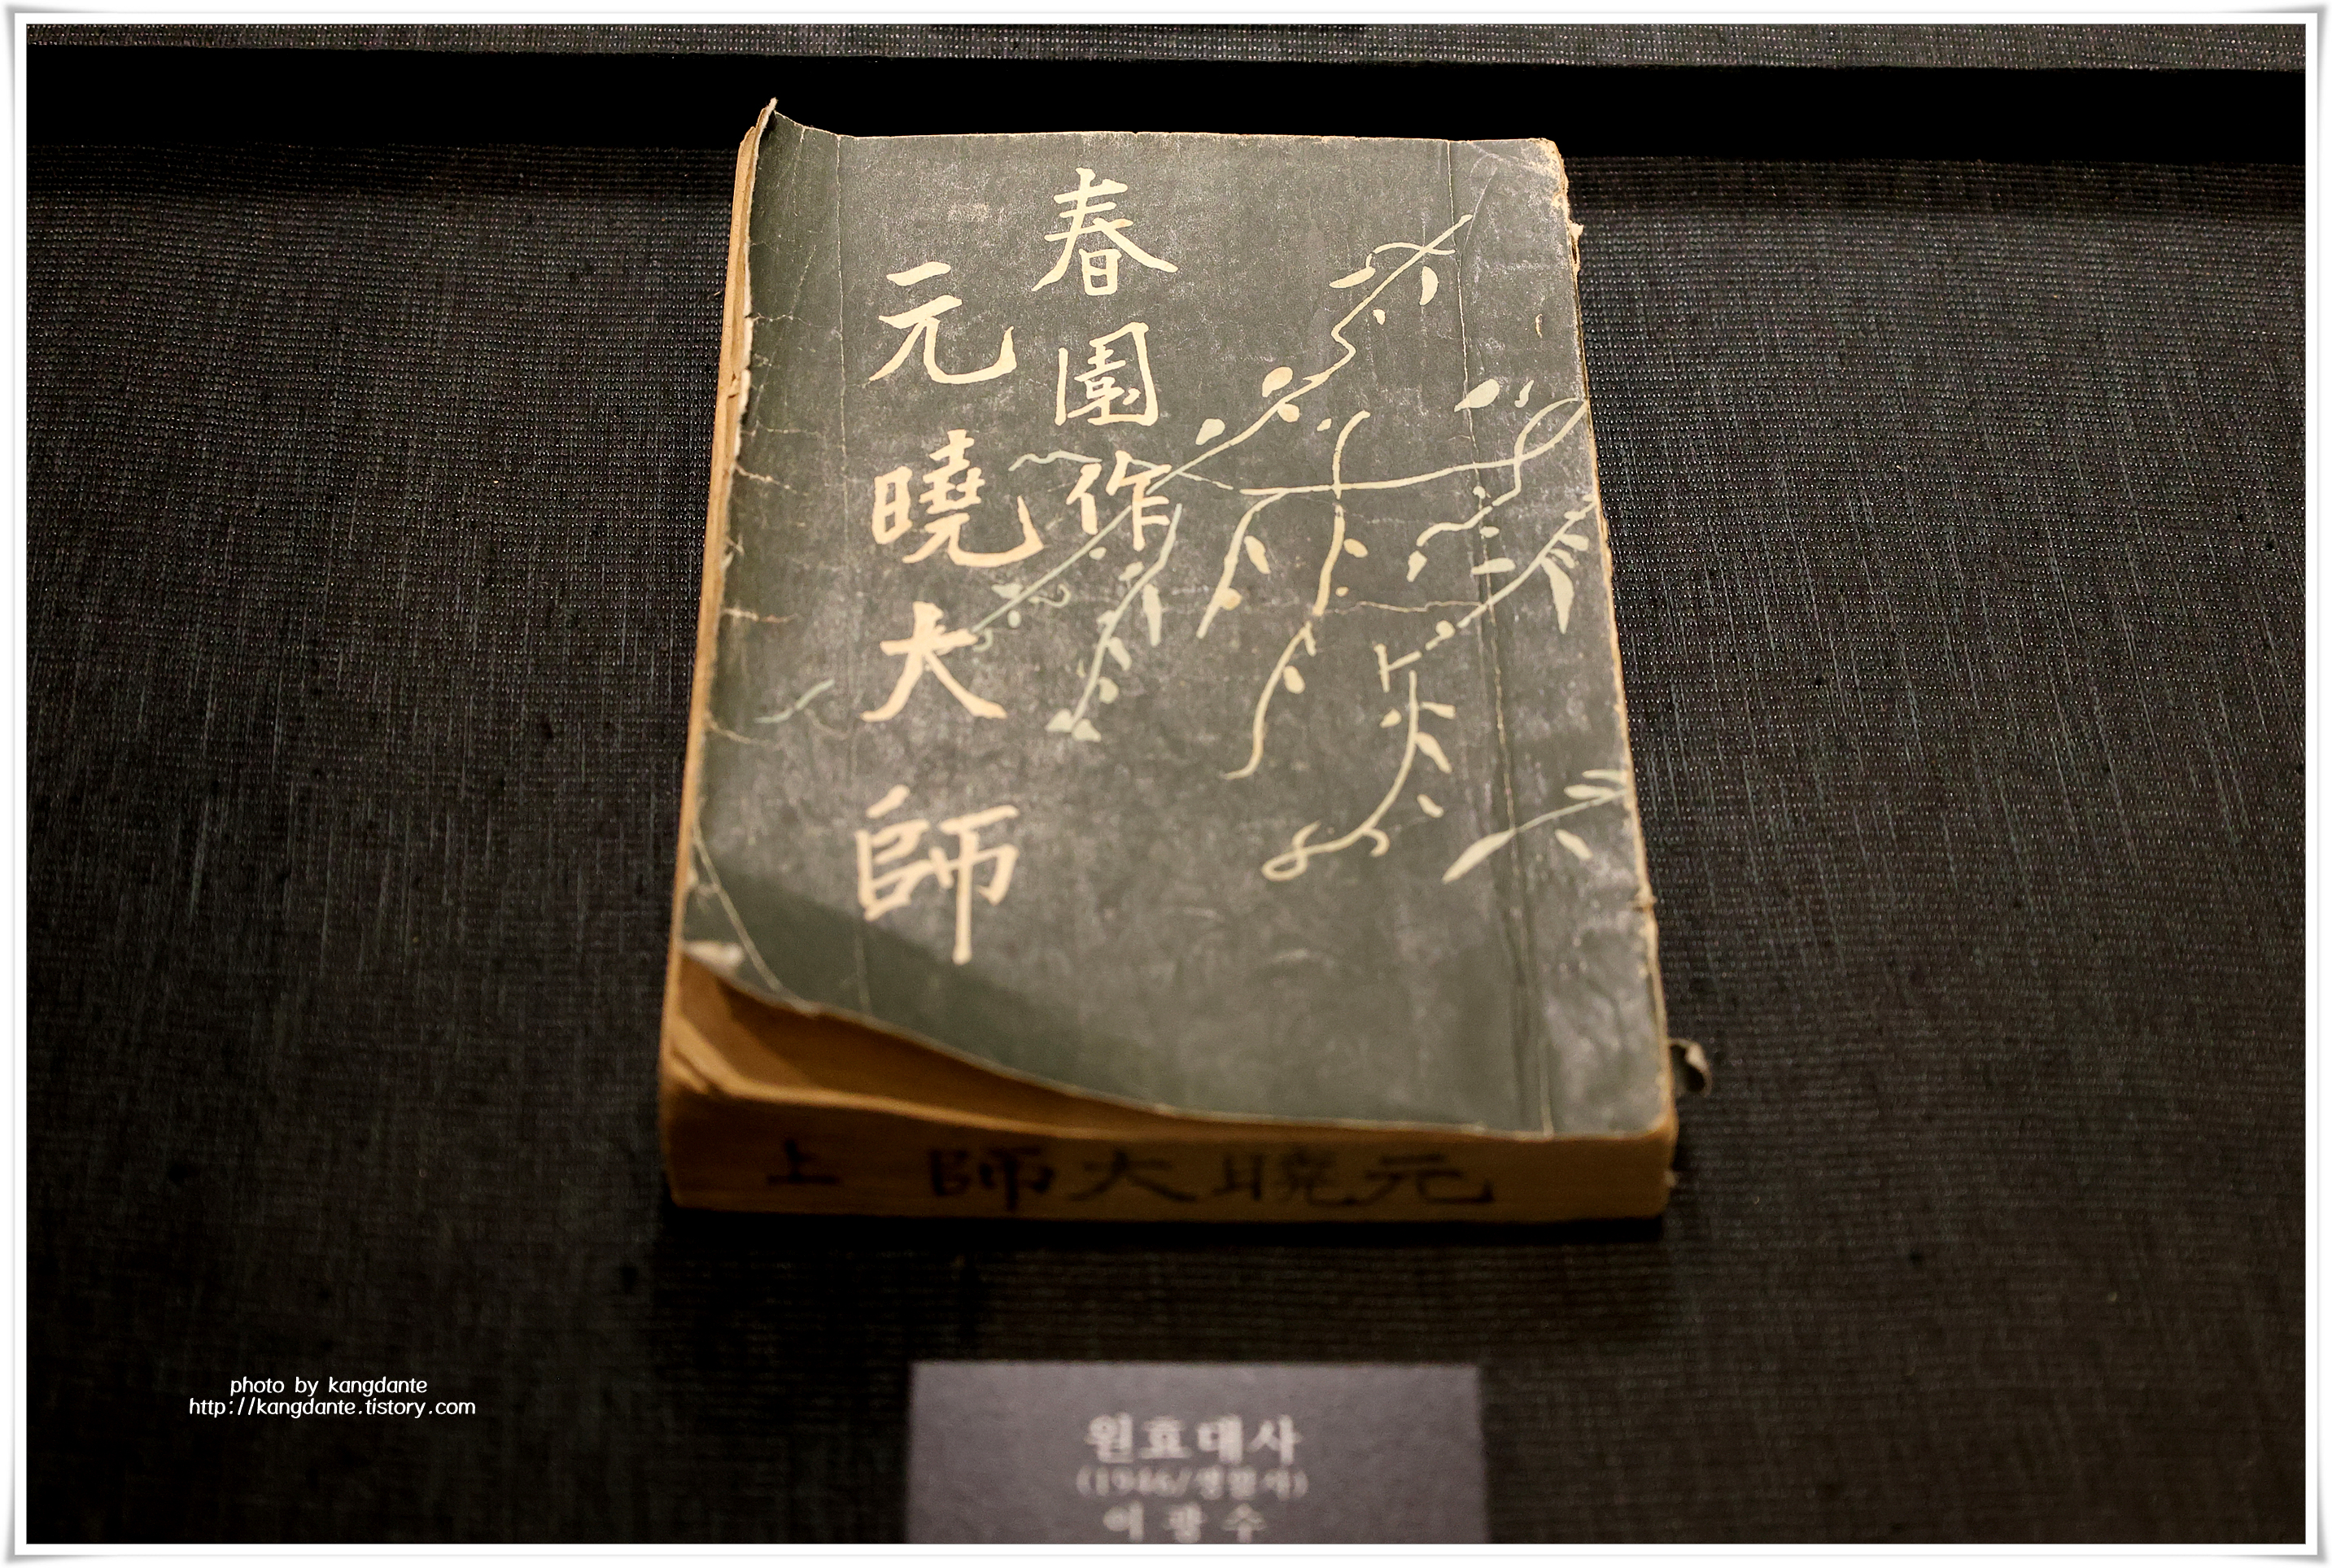 春園作
元曉大師
上 師大曉元
photo by kangdante
http://kangdante.tistory.com
원효대사
(1946/생활사)
이광수